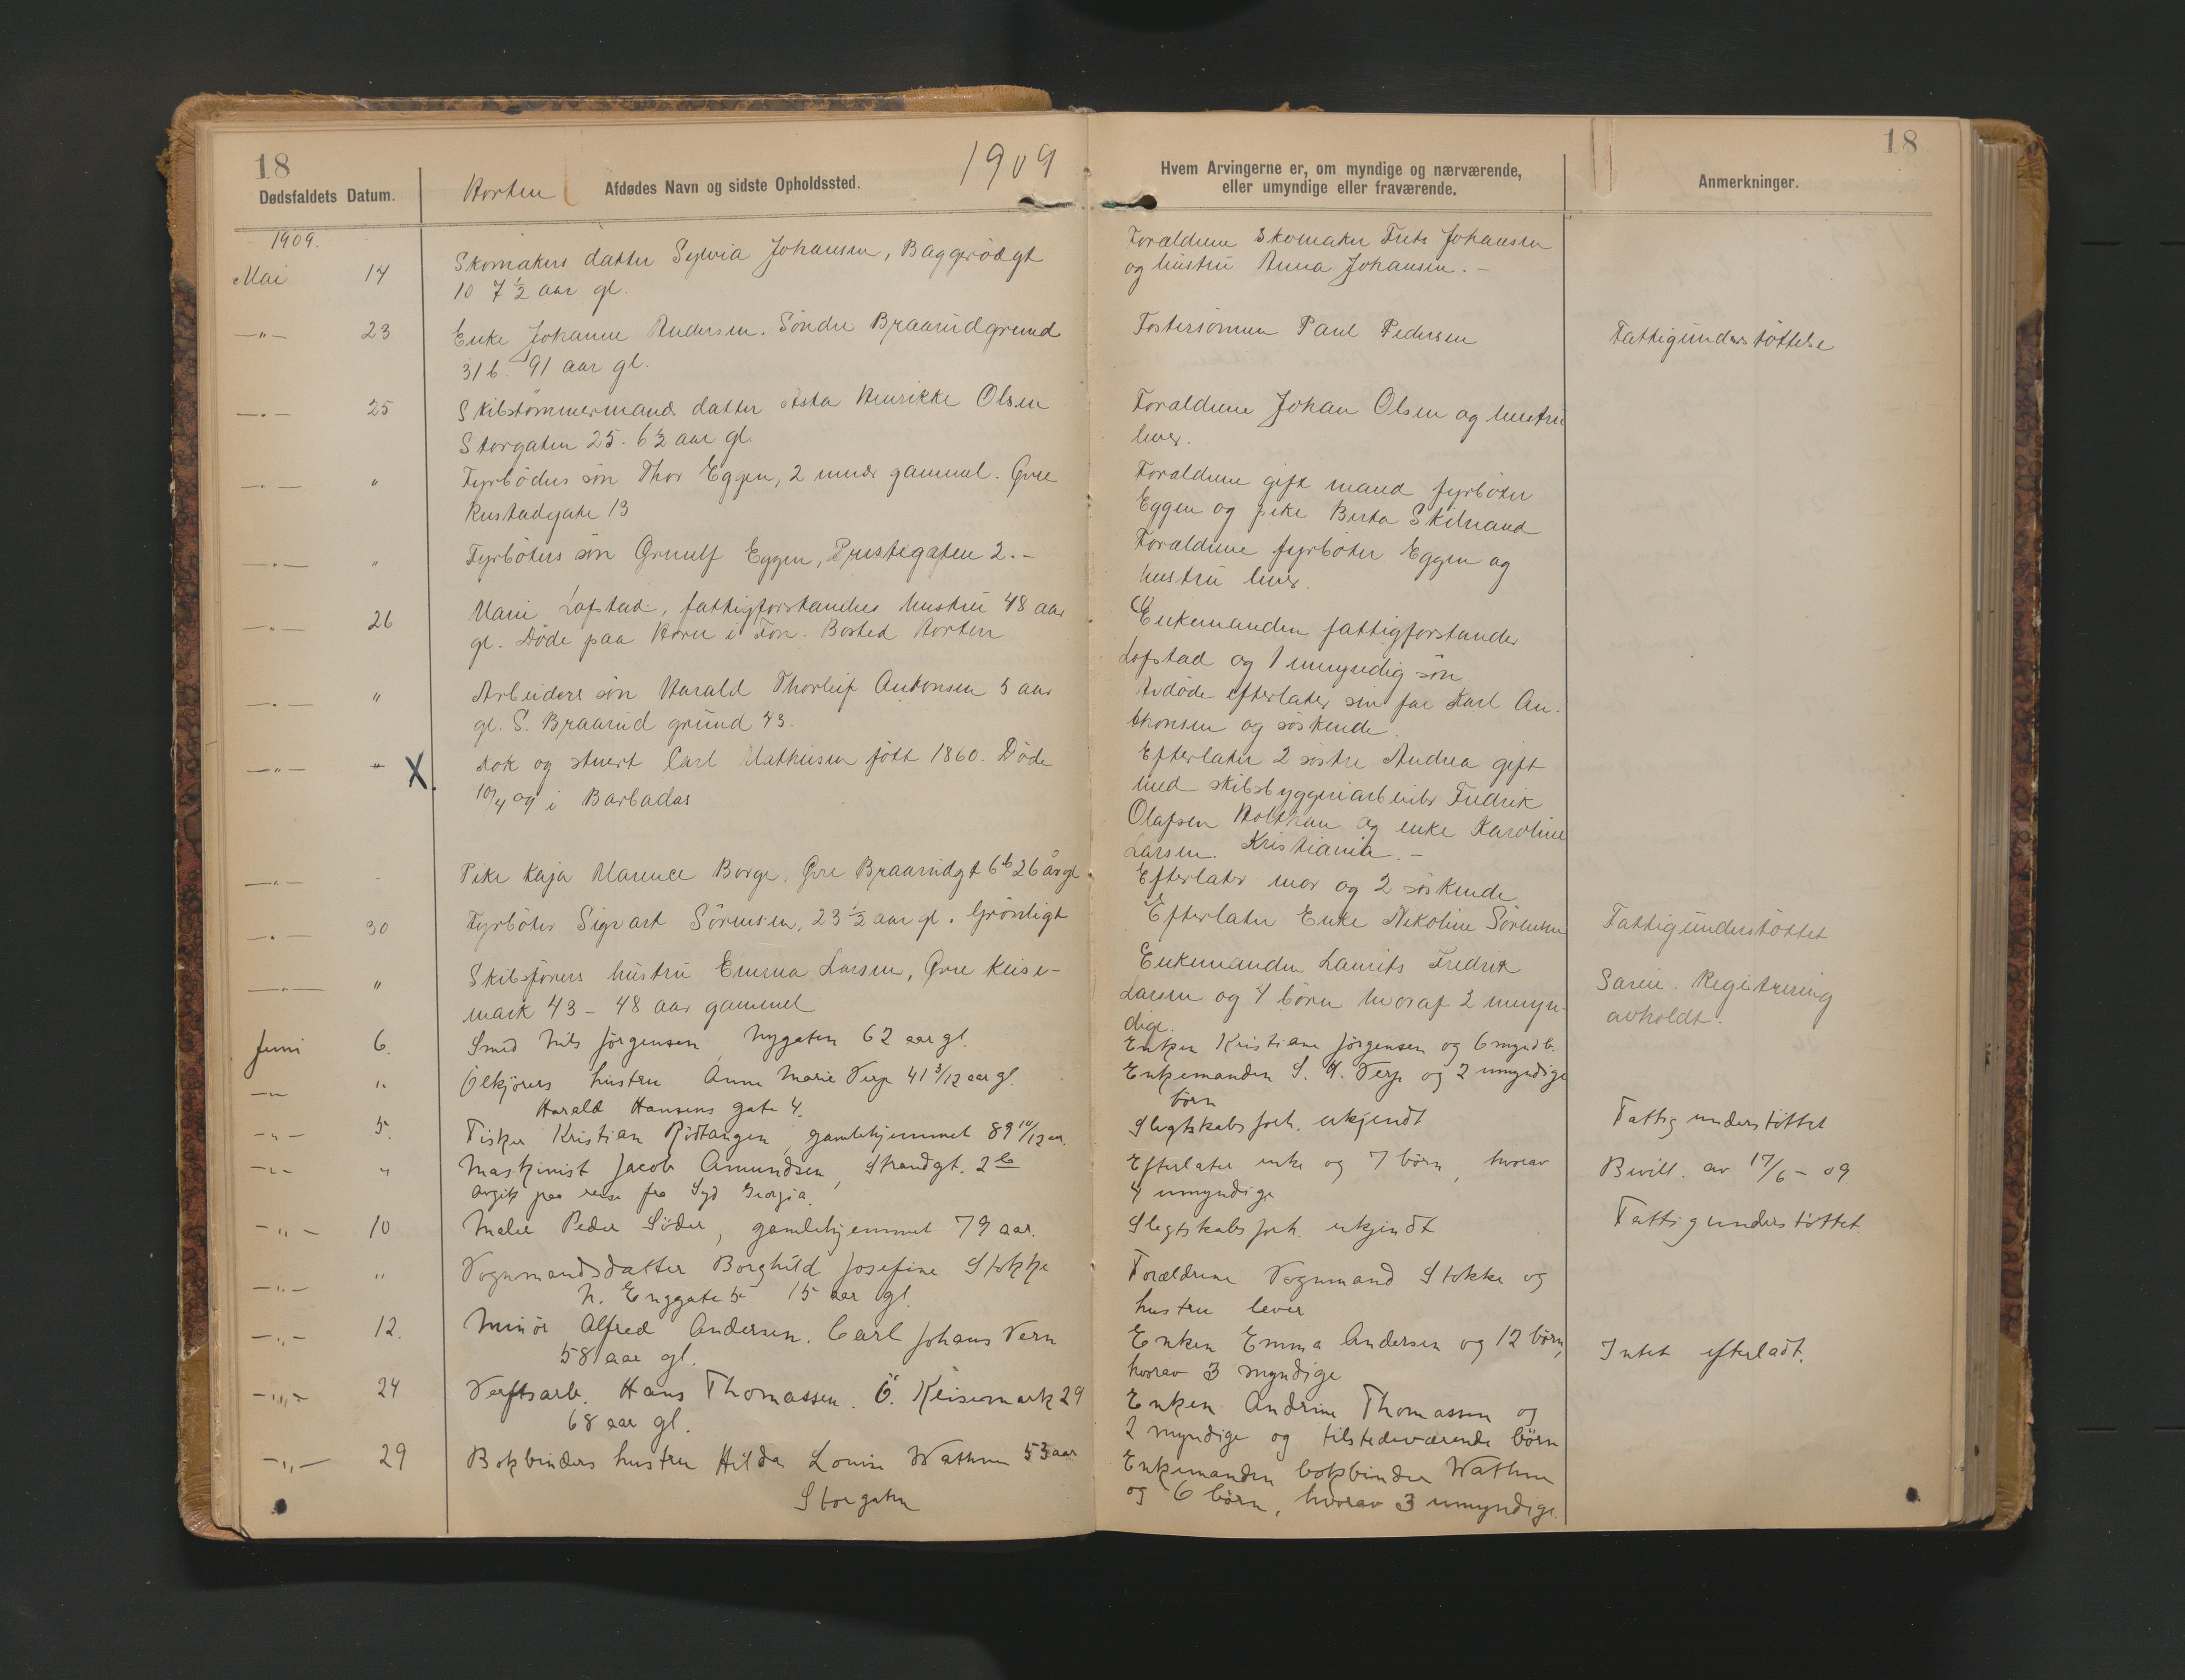 18
1909
18
Dødsfaldets Datum.
Horten
Afdødes Navn og sidste Opholdssted.
Hvem Arvingerne er, om myndige og nærværende,
eller umyndige eller fraværende.
Anmerkninger.
1909.
Mai 14
Skomakers datter Sylvia Johansen, Baggerødgt
10 7½ aar gl.
Forældrene Skomaker Frits Johansen
og hustru Anna Johansen. –
—"— 23
Enke Johanne Andersen. Søndre Braarudgrund
31 b. 91 aar gl.
Fostersønnen Paul Pedersen
Fattigunderstøttelse
—"— 25
Skibstømmermands datter Asta Henrikke Olsen
Storgaten 25. 6½ aar gl.
Forældrene Johan Olsen og hustru
lever.
—"— "
Fyrbøders søn Thor Eggen, 2 mndr gammel. Øvre
Rustadgate 13
Forældrene gift mand fyrbøter
Eggen og pike Berta Skilnand
—"— "
Fyrbøters søn Ørnulf Eggen, Prestegaten 2. –
Forældrene fyrbøter Eggen og
hustru lever.
—"— 26
Marie Lofstad, fattigforstanders hustru 48 aar
gl. Døde paa Horn i Fon. Bosted Horten
Enkemanden fattigforstander
Lofstad og 1 umyndig søn.
—"— "
Arbeiders søn Harald Thorleif Antonsen 5 aar
gl. S. Braarud grund 43.
Avdøde efterlater sin far Karl An-
thonsen og søskende.
—"— " X.
Kok og stuert Carl Mathisen født 1860. Døde
10/4 09 i Barbados
Efterlater 2 søstre Andrea gift
med skibsbyggeriarbeider Fredrik
Olafsen Holtham og enke Karoline
Larsen. Kristiania. –
—"— -
Pike Kaja Marence Borge, Øvre Braarudgt 6b 26 år gl.
Efterlater mor og 2 søskende.
—"— 30
Fyrbøter Sigvart Sørensen, 23½ aar gl. Grønligt
Efterlater Enke Nikoline Sørensen
Fattigunderstøttet
—"— "
Skibsførers hustru Emma Larsen, Øvre Keise-
mark 43 – 48 aar gammel
Enkemanden Laurits Fredrik
Larsen og 4 børn hvoraf 2 umyn-
dige.
Registrering
avholdt.
Juni 6.
Smed Nils Jørgensen, Nygaten 62 aar gl.
Enken Kristiane Jørgensen og 6 mynd b.
—"— "
Ølkjørers hustru Anne Marie Verp 41 3/12 aar gl.
Harald Hansens gate 4.
Enkemanden S. H. Verp og 2 umyndige
børn
—"— 5.
Fisker Kristian Rødtangen, gamlehjemmet 89 10/12 aar.
Slegtskabsforh. ukjendt
Fattigunderstøttet
—"— "
Maskinist Jacob Amundsen, Strandgt. 2b
avgik paa reise fra Syd Georgia.
Efterlater enke og 7 børn, hvorav
4 umyndige
Bevill. av 17/6 – 09
—"— 10
Maler Peder Söder, gamlehjemmet 79 aar.
Slegtskabsforh. ukjendt
Fattigunderstøttet.
—"— "
Vognmandsdatter Borghild Josefine Stokke
N. Enggate 5. 15 aar gl.
Forældrene Vognmand Stokke og
hustru lever
—"— 12.
Minør Alfred Andersen. Carl Johans Vern
58 aar gl.
Enken Emma Andersen og 12 børn,
hvorav 3 myndige
Intet efterladt.
—"— 24
Verftsarb. Hans Thomassen. Ö. Keisemark 29
68 aar gl.
Enken Andrine Thomassen og
2 myndige og tilstedeværende børn
—"— 29
Bokbinders hustru Hilda Louise Wathne 53 aar
Storgaten
Enkemanden bokbinder Wathne
og 6 børn, hvorav 3 umyndige.